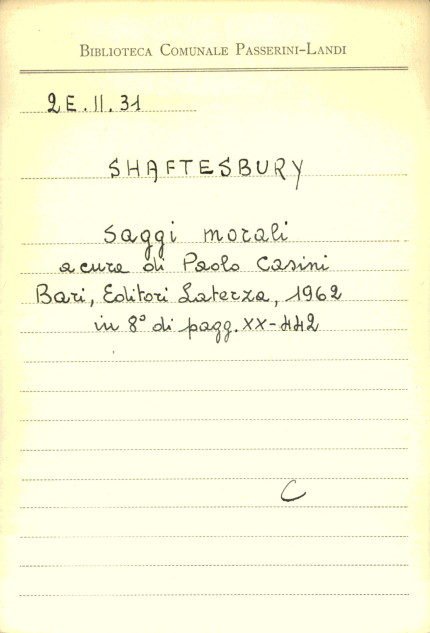 BIBLIOTECA COMUNALE PASSERINI-LANDI
2E.II.31
SHAFTESBURY
Saggi morali
a cura di Paolo Casini
Bari, Editori Laterza, 1962
in 8° di pagg. XX-442
C